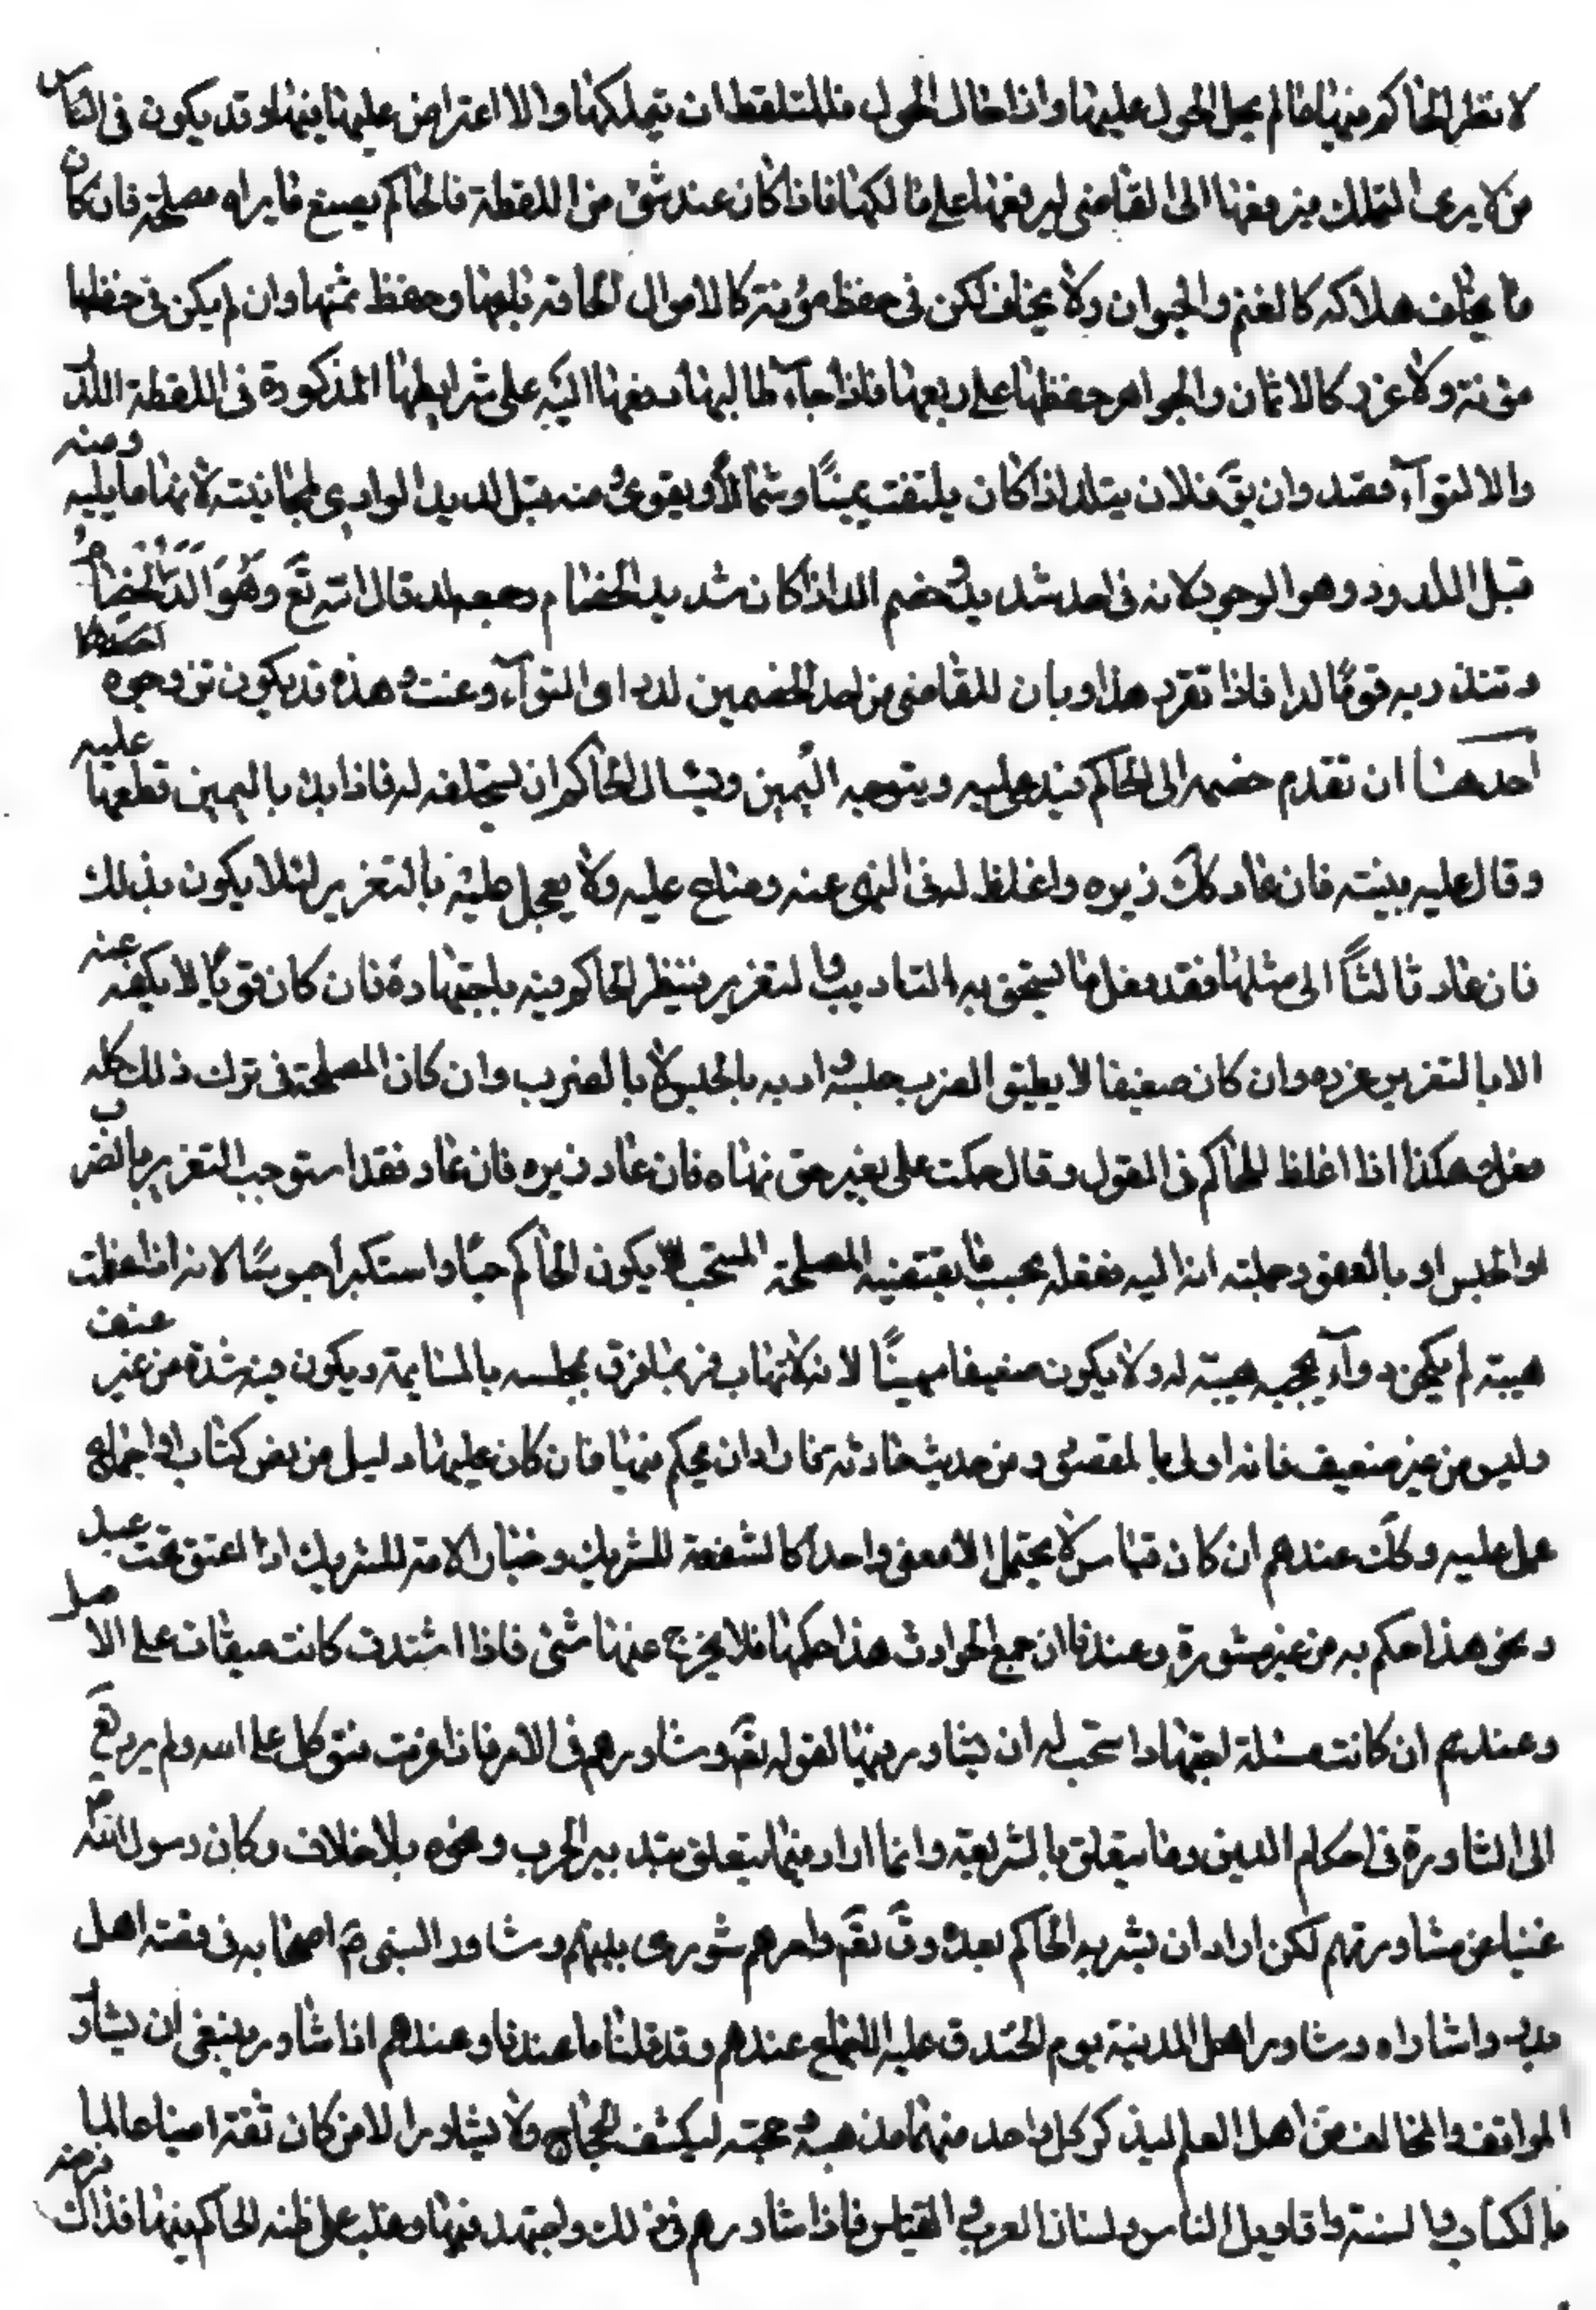 لا نظر للحاكم فيها ما لم يحل الحول عليها واذا حال الحول فللملتقط ان يتملكها والا اعتراض عليها فيها وقد يكون فى الناس
من لا يرى التملك فيرفعها الى القاضى ليرفعها على مالكها فاذا كان عند شئ من اللقطة فالحاكم يصنع ما يراه مصلحة فان كان
ما يخاف هلاكه كالغنم والحيوان ولا يخاف لكن فى حفظ مؤنته كالاموال الجافة باعها وحفظ ثمنها وان لم يكن فى حفظها
مؤنة ولا غرر كالاثمان والجواهر حفظها على ربعها فاذا جاء طالبها دفعها اليه على شرايطها المذكورة فى اللقطة اللدد
والالتواء فقد وان يق فلان يتلدد اذا كان يلتفت يمينًا وشمالًا ويقوى منه قبل لديد الوادى لجانبيه لانها ما يليه ومنه
قبل اللدود وهو الوجور لانه فى احد شديد وخصم الد اذا كان شديد الخصام وجمعه لد قال الله تع وهو الد الخصام
وتنذر به قومًا لدا فاذا تقرر هذا وبان للقاضى من احد الخصمين لدد اى التواء وعنت وهذه قد يكون من وجوه احدها
احدهـا ان تقدم خصمه الى الحاكم فيدعى عليه ويتوجه اليمين ويسال الحاكم ان يستحلفه له فاذا بدا باليمين قطعها عليه
وقال عليه بينته فان عاد كك زبره واغلظ له فى النهى عنه وصاح عليه ولا يعجل عليه بالتعزير لئلا يكون بذلك
فان عاد ثالثًا الى مثلها فقد فعل ما يستحق به التاديب والتعزير فينظر الحاكم فيه باجتهاده فان كان قويًا لا يكفه عنه
الا بالتعزير عزره وان كان ضعيفا لا يطيق الضرب حبسه وادبه بالحبس لا بالضرب وان كان المصلحة فى ترك ذلك كله
فعل وهكذا اذا اغلظ للحاكم فى القول وقال حكمت على بغير حق نهاه فان عاد زبره فان عاد فقد استوجب التعزير بالضرب
او الحبس او بالعفو وجملته انه اليه فعله بحسب ما يقتضيه المصلحة المستحب ان لا يكون الحاكم جبارا مستكبرا عبوسًا لانه اذا عظمت
هيبته لم يكن دواء يجيبه هيبة له ولا يكون ضعيفا مهينًا لانه لا تهاب فربما فرق بمجلسه بالمشاتمة ويكون فيه شدة من غير عنف
ولين من غير ضعيف فانه اولى بالمقصود ومن حديث حادثة فاراد ان يحكم فيها فان كان عليها دليل من نص كتاب او اجماع
عمل عليه وكك عندهم ان كان قياس لا يحتمل الا معنى واحدا كالشفعة للشريك وخيار الامة للشريك اذا اعتق تحت عبد
ونحو هذا حكم به من غير مشورة وعندنا ان جميع الحوادث هذا حكمها فلا يخرج عنها شئ فاذا اشتدت كانت مبقات على الاصل
وعندهم ان كانت مسئلة اجتهاد استحب له ان يشاور فيها لقوله تع وشاورهم فى الامر فاذا عزمت فتوكل على الله ولم يرد تع
الى المشاورة فى احكام الدين وما يتعلق بالشريعة وانما اراد فيما يتعلق بتدبير الحرب ونحوه بلا خلاف وكان رسول الله ص
غنيا عن مشاورتهم لكن اراد ان يشربه الحاكم بعده وق تع وامرهم شورى بينهم وشاور النبى ص اصحابه فى قصة اهل
بدر واساراه وشاور اهل المدينة يوم الخندق عليه الاجماع عندهم وقد قلنا ما عندنا وعندهم اذا شاور ينبغى ان يشاور
الموافق والمخالف من اهل العلم ليذكر كل واحد منهما مذهبه وحجته ليكشف الحجاج ولا يشاور الا من كان ثقة امينا عالما
بالكتاب والسنة واقاويل الناس ولسان العرب والقياس فاذا شاورهم فى ذلك واجتهد فيها وغلب على ظنه الحاكم فيها فذاك فرضه